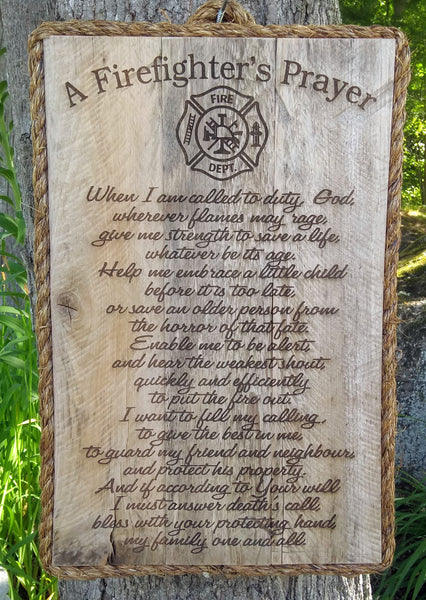 A Firefighter's Prayer
FIRE
DEPT.
When I am called to duty, God,
wherever flames may rage,
give me strength to save a life,
whatever be its age.
Help me embrace a little child
before it is too late,
or save an older person from
the horror of that fate.
Enable me to be alert,
and hear the weakest shout,
quickly and efficiently
to put the fire out.
I want to fill my calling,
to give the best in me,
to guard my friend and neighbour,
and protect his property.
And if according to Your will
I must answer death's call,
bless with your protecting hand,
my family one and all.